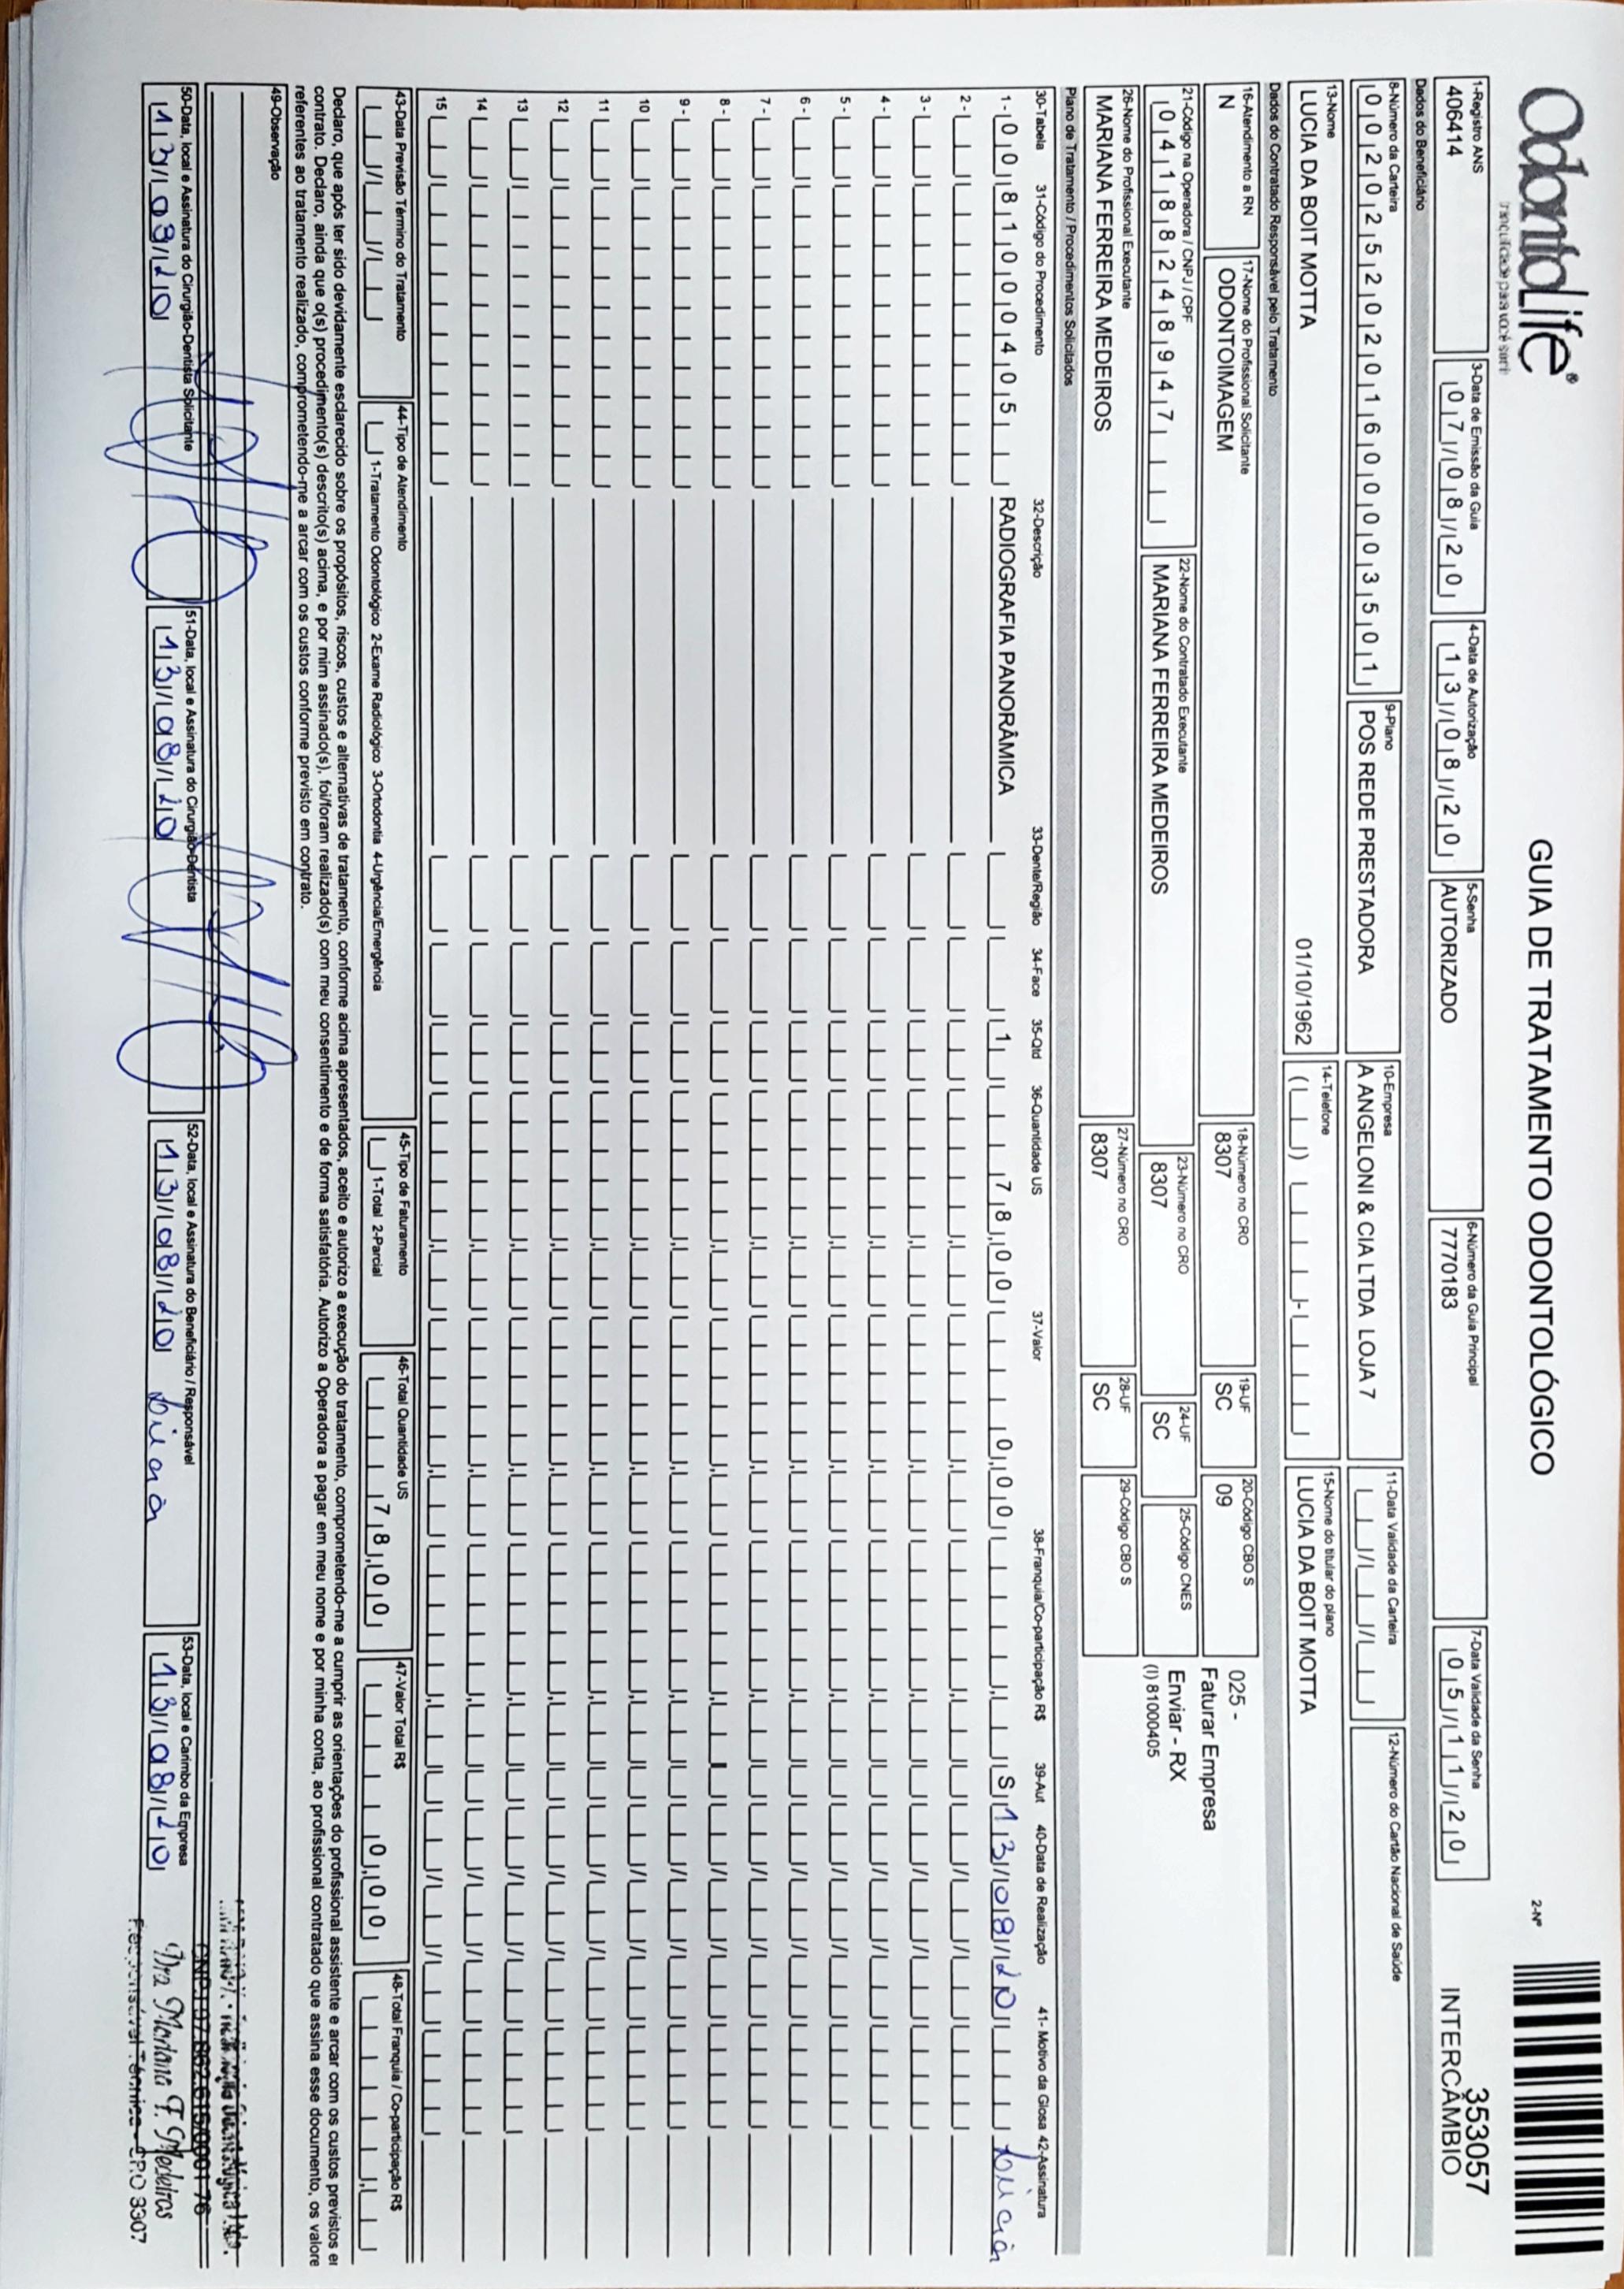 OdontoLife®
GUIA DE TRATAMENTO ODONTOLÓGICO
2-Nº
353057
INTERCÂMBIO
1-Registro ANS
406414
3-Data de Emissão da Guia
07/08/20
4-Data de Autorização
13/08/20
5-Senha
AUTORIZADO
6-Número da Guia Principal
7770183
7-Data Validade da Senha
05/11/20
Dados do Beneficiário
8-Número da Carteira
00202520201600003501
9-Plano
POS REDE PRESTADORA
10-Empresa
A ANGELONI & CIA LTDA LOJA 7
11-Data Validade da Carteira
12-Número do Cartão Nacional de Saúde
13-Nome
LUCIA DA BOIT MOTTA 01/10/1962
14-Telefone
15-Nome do titular do plano
LUCIA DA BOIT MOTTA
Dados do Contratado Responsável pelo Tratamento
16-Atendimento a RN
N
17-Nome do Profissional Solicitante
ODONTOIMAGEM
18-Número no CRO
8307
19-UF
SC
20-Código CBO S
09
025 -
Faturar Empresa
21-Código na Operadora / CNPJ / CPF
04188248947
22-Nome do Contratado Executante
MARIANA FERREIRA MEDEIROS
23-Número no CRO
8307
24-UF
SC
25-Código CNES
Enviar - RX
(I) 81000405
26-Nome do Profissional Executante
MARIANA FERREIRA MEDEIROS
27-Número no CRO
8307
28-UF
SC
29-Código CBO S
Plano de Tratamento / Procedimentos Solicitados
30-Tabela 31-Código do Procedimento 32-Descrição 33-Dente/Região 34-Face 35-Qtd 36-Quantidade US 37-Valor 38-Franquia/Co-participação R$ 39-Aut 40-Data de Realização 41- Motivo da Glosa 42-Assinatura
1 - 00 81000405 RADIOGRAFIA PANORÂMICA 1 78,00 0,00 S 13/08/20 Lucia
2 -
3 -
4 -
5 -
6 -
7 -
8 -
9 -
10
11
12
13
14
15
43-Data Previsão Término do Tratamento
44-Tipo de Atendimento
1-Tratamento Odontológico 2-Exame Radiológico 3-Ortodontia 4-Urgência/Emergência
45-Tipo de Faturamento
1-Total 2-Parcial
46-Total Quantidade US
78,00
47-Valor Total R$
0,00
48-Total Franquia / Co-participação R$
Declaro, que após ter sido devidamente esclarecido sobre os propósitos, riscos, custos e alternativas de tratamento, conforme acima apresentados, aceito e autorizo a execução do tratamento, comprometendo-me a cumprir as orientações do profissional assistente e arcar com os custos previstos e
contrato. Declaro, ainda que o(s) procedimento(s) descrito(s) acima, e por mim assinado(s), foi/foram realizado(s) com meu consentimento e de forma satisfatória. Autorizo a Operadora a pagar em meu nome e por minha conta, ao profissional contratado que assina esse documento, os valore
referentes ao tratamento realizado, comprometendo-me a arcar com os custos conforme previsto em contrato.
49-Observação
50-Data, local e Assinatura do Cirurgião-Dentista Solicitante
13/08/20
51-Data, local e Assinatura do Cirurgião-Dentista
13/08/20
52-Data, local e Assinatura do Beneficiário / Responsável
13/08/20 Lucia
53-Data, local e Carimbo da Empresa
13/08/20
Dra Mariana F. Medeiros
Responsável Técnica - CRO